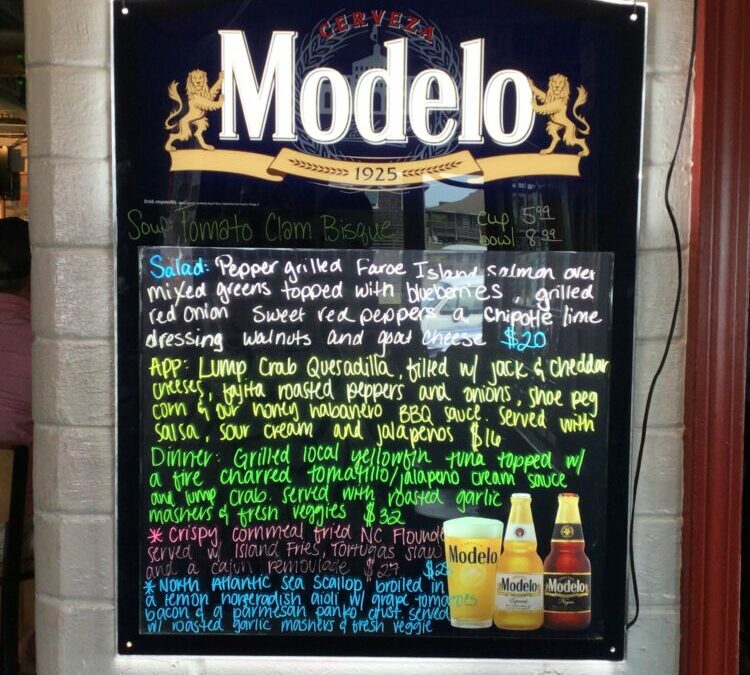 CERVEZA
Modelo
1925
Soup Tomato Clam Bisque cup 5.99
bowl 8.99
Salad: Pepper grilled Faroe Island salmon over
mixed greens topped with blueberries, grilled
red onion sweet red peppers a chipotle lime
dressing walnuts and goat cheese $20
App: Lump Crab Quesadilla, filled w/ jack & cheddar
cheeses, fajita roasted peppers and onions, shoe peg
corn & our honey habanero BBQ sauce. served with
salsa, sour cream and jalapeños $16
Dinner: Grilled local yellowfin tuna topped w/
a fire charred tomatillo/jalapeno cream sauce
and lump crab. served with roasted garlic
mashers & fresh veggies $32
* Crispy cornmeal fried NC Flounder
served w/ Island Fries, Tortugas slaw
and a cajun remoulade $27
* North Atlantic sea scallop broiled in
a lemon horseradish aioli w/ grape tomatoes
bacon & a parmesan panko crust served
w/ roasted garlic mashers & fresh veggie
Modelo
Modelo
Especial
Modelo
Negra